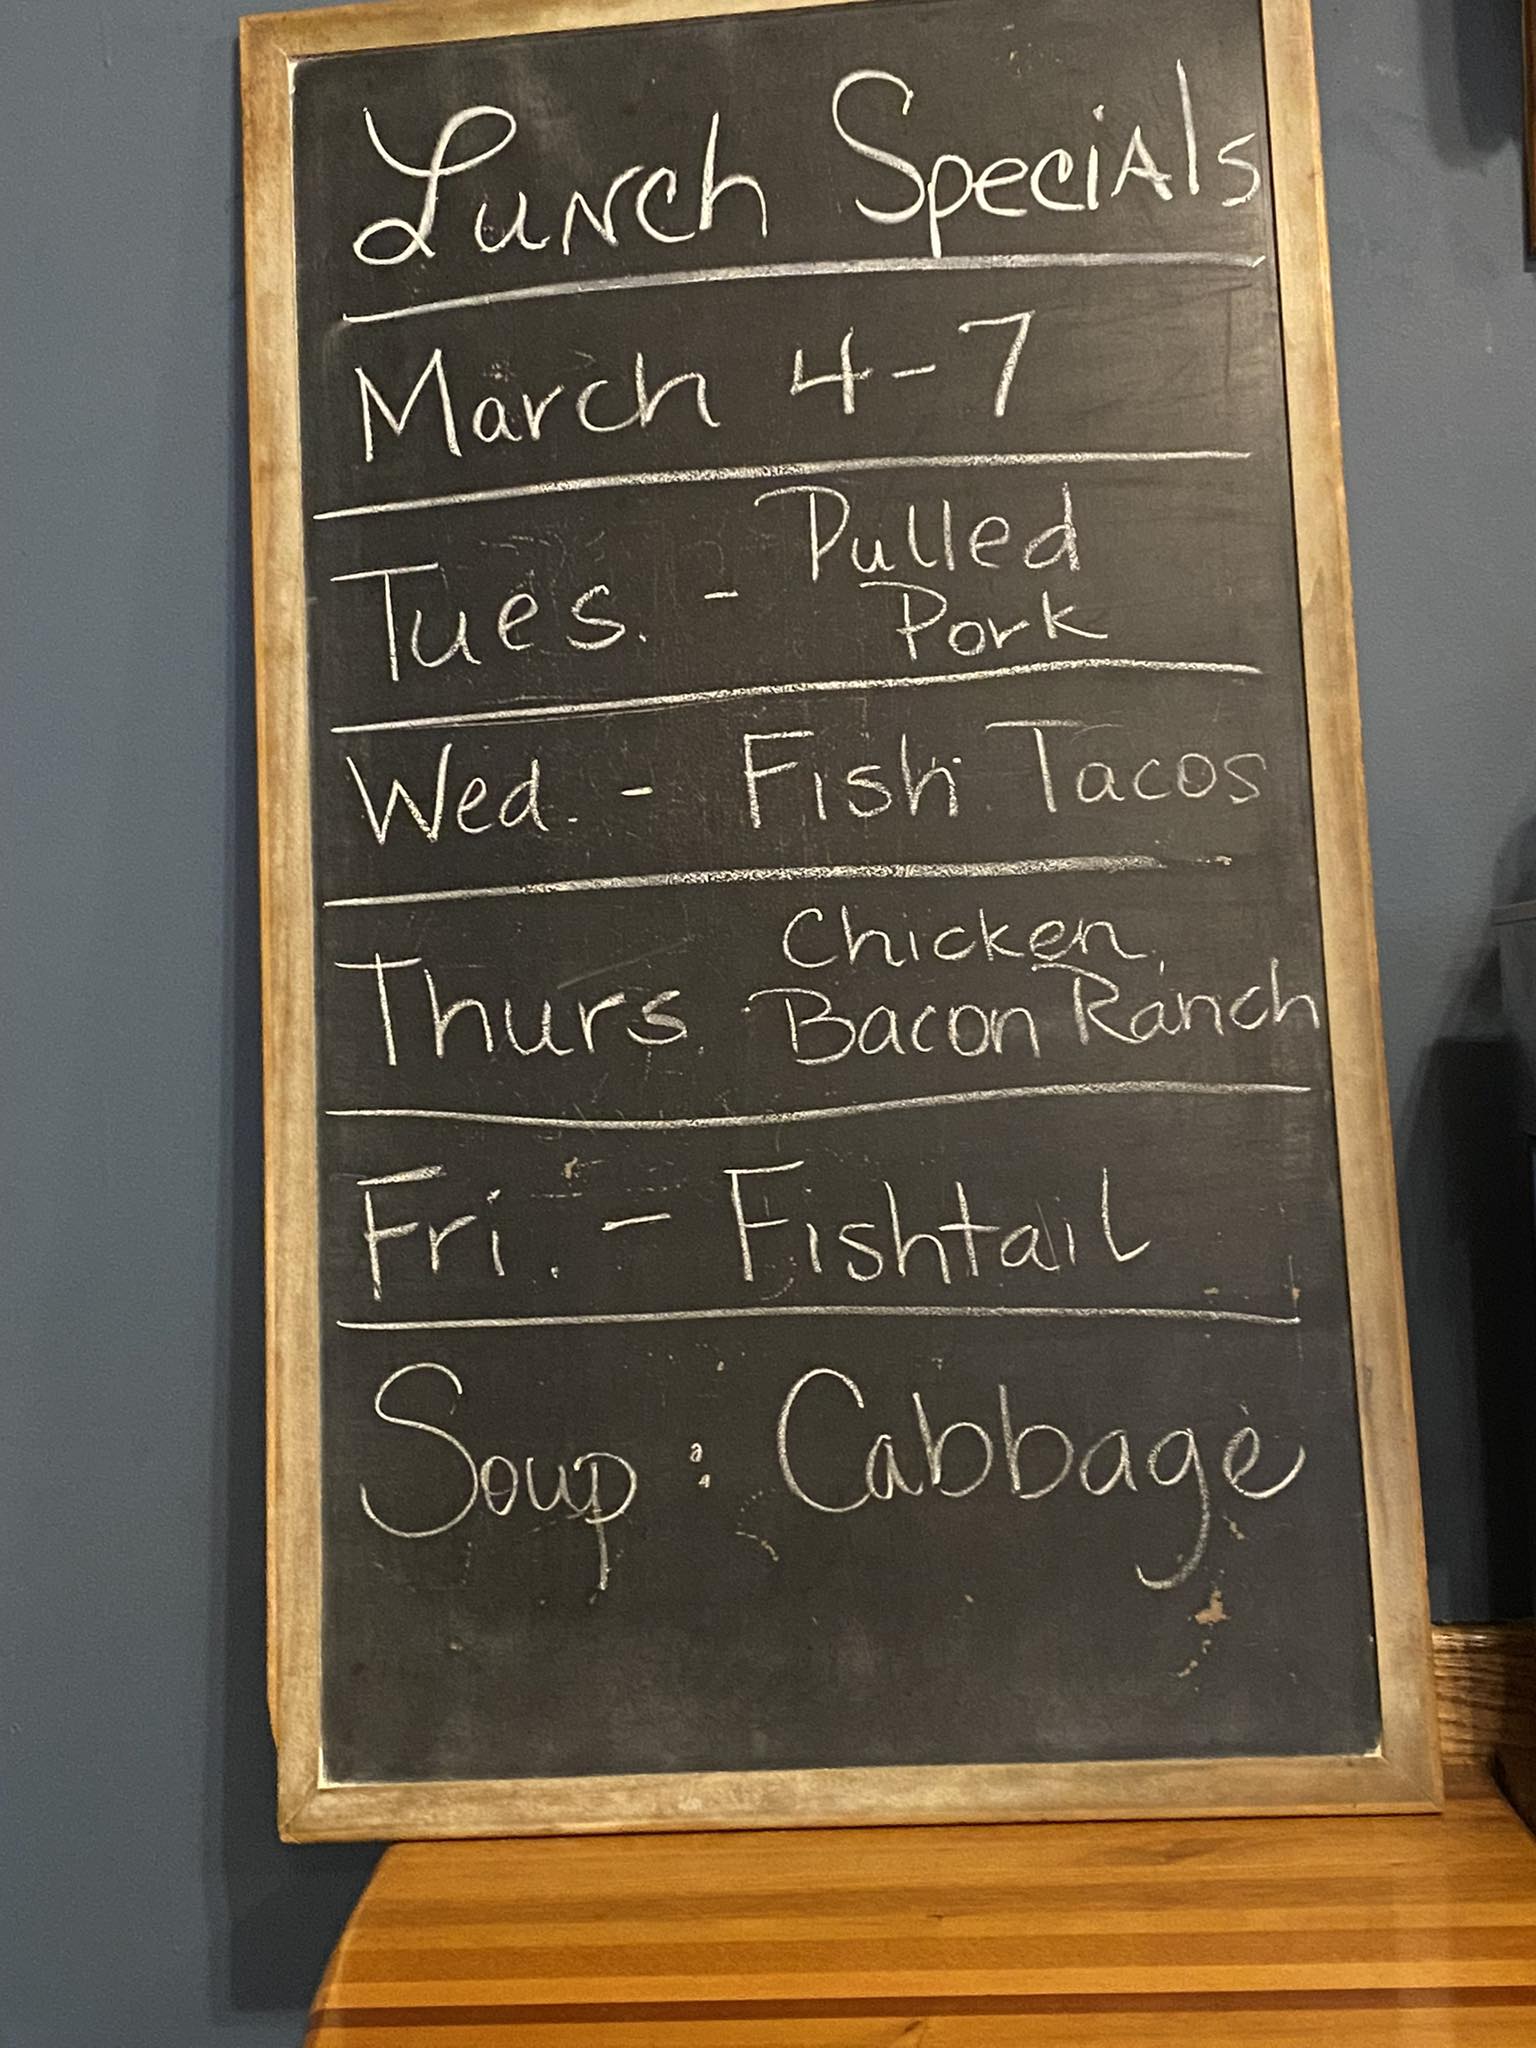 Lunch Specials
March 4-7
Tues. - Pulled
Pork
Wed. - Fish Tacos
Chicken
Thurs. Bacon Ranch
Fri. - Fishtail
Soup : Cabbage